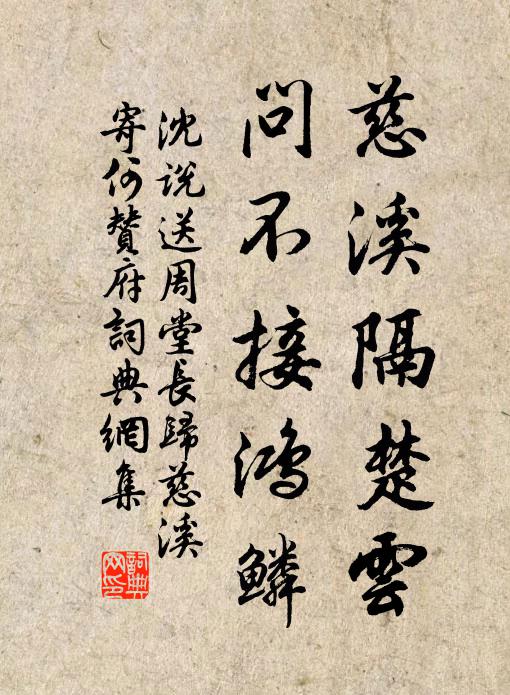 慈溪隔楚雲
問不接鴻鱗
沈說送周堂長歸慈溪
寄何贊府詞典網集
詞典網印